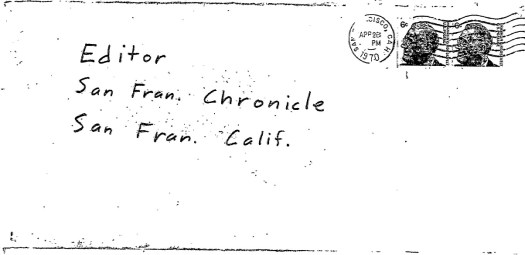 Editor
San Fran. Chronicle
San Fran. Calif.
6c 6c
APR 28
PM
1970